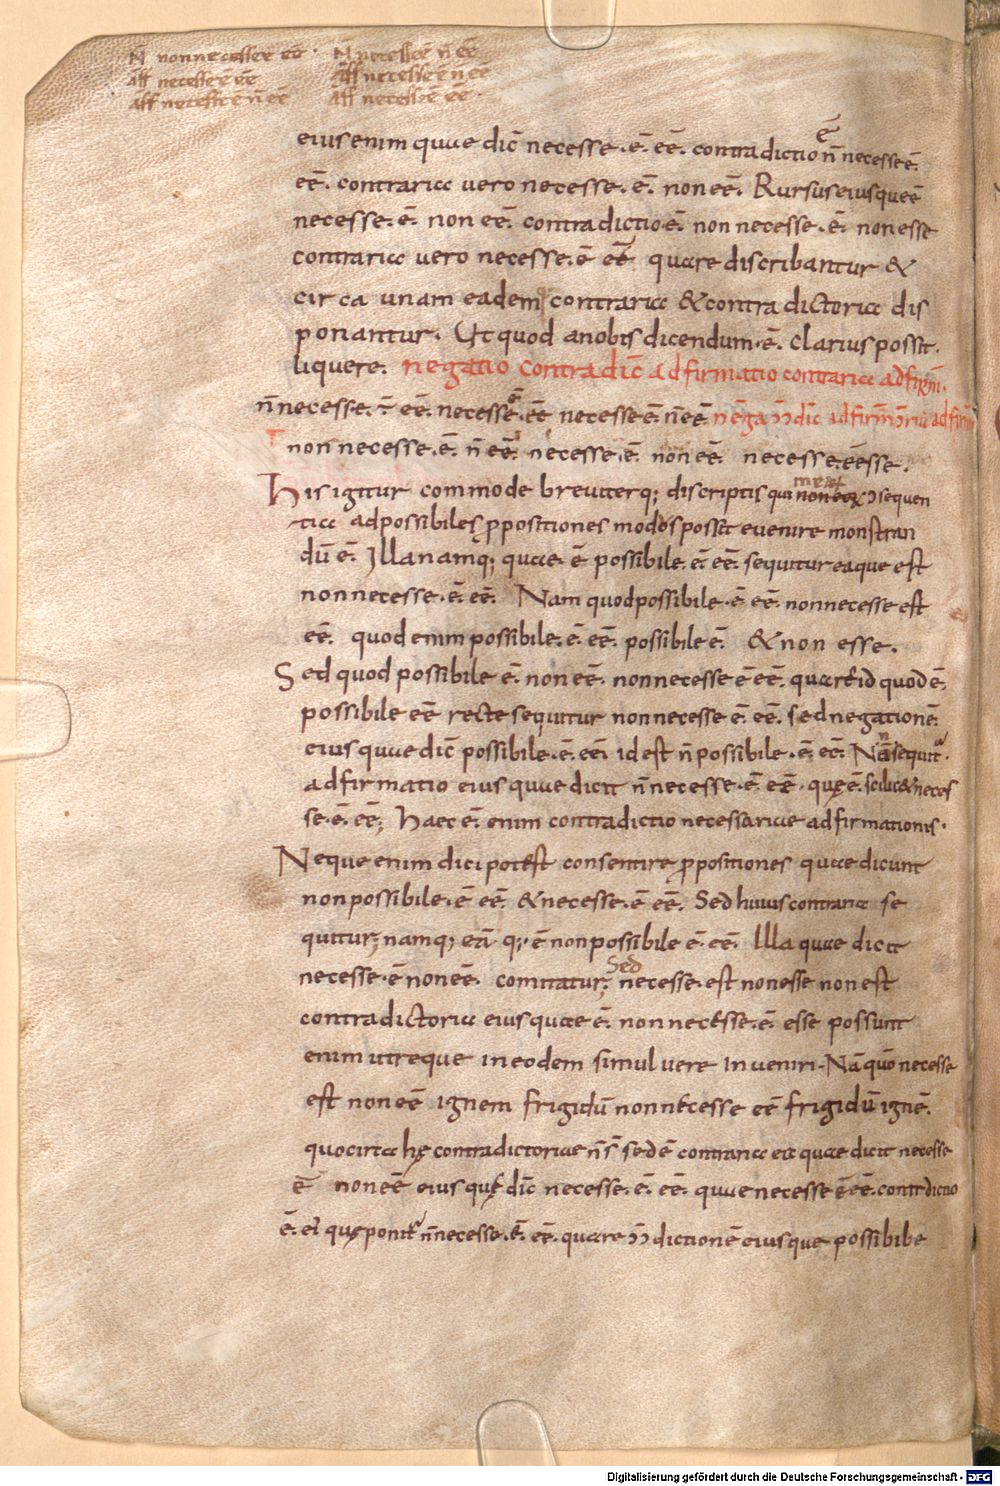 N̄ nonnecesse ē eē · N̄ necesse ē n̄ eē
aff necesse ē eē aff necesse ē n̄ eē
aff necesse ē n̄ eē aff necesse ē eē ·
eius enim quae dic̄ necesse · ē · eē · contradictio ē n̄ necesse ē
eē · contraria uero necesse · ē · non eē · Rursus eius que ē
necesse · ē · non eē · contradictio · ē · non necesse · ē · non esse
contraria uero necesse · ē eē quare discribantur &
circa unam eadem contrariae & contradictoriae dis
ponantur · Ut quod a nobis dicendum · ē · clarius possit ·
liquere · negatio contradic̄ adfirmatio contraria adfirm̄ ·
n̄ necesse · ē eē · necesse ē eē necesse ē · n̄ eē
non necesse · ē · n̄ eē · necesse · ē · non eē · necesse · ē esse ·
His igitur commode breuiterq; discriptis qui ɔsequen
tia ad possibiles ꝓpositiones modos possit euenire monstran
dū ē · Illa namq; quae · ē possibile · ē · eē · sequitur ea que est
non necesse · ē · eē · Nam quod possibile · ē eē · non necesse est
eē · quod enim possibile · ē · eē · possibile ē · & non esse ·
Sed quod possibile ē · non eē · non necesse ē eē · quare id quod ē ·
possibile eē recte sequitur non necesse · ē · eē · sed negationē
eius quae dic̄ possibile · ē · eē · id est n̄ possibile · ē · eē · Nā n̄ sequit
adfirmatio eius quae dicit n̄ necesse · ē · eē · quę ē · scilic& neces
se · ē · eē; Haec ē · enim contradictio necessariae adfirmationis ·
Neque enim dici potest consentire ꝓpositiones quae dicunt
non possibile · ē eē · & necesse · ē eē · Sed huius contraria se
quitur; namq; eā · q; · ē non possibile ē · eē · Illa quae dicit
necesse · ē non eē · comitatur; Sed necesse · est non esse non est
contradictoria eius quae ē · non necesse · ē · esse possunt
enim utreque in eodem simul uere inueniri · Nā quō necesse
est non eē ignem frigidū non necesse eē frigidū ignē ·
quocirca hę contradictoriae n̄ s̄ sed ē contraria ea quae dicit necesse
ē non eē eius quę dic̄ necesse · ē · eē · quae necesse ē eē · contradictio
ē · ei quę ponit n̄ necesse · ē · eē · quare ɔ̄dictionē eius que possibile
Digitalisierung gefördert durch die Deutsche Forschungsgemeinschaft - DFG